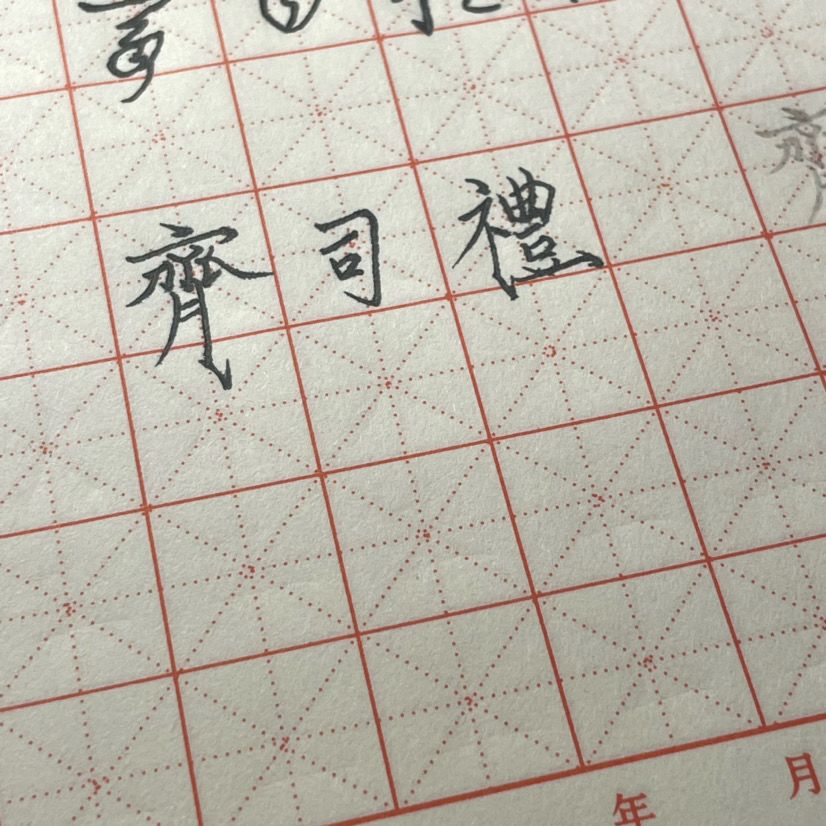 齊司禮
齊
年 月